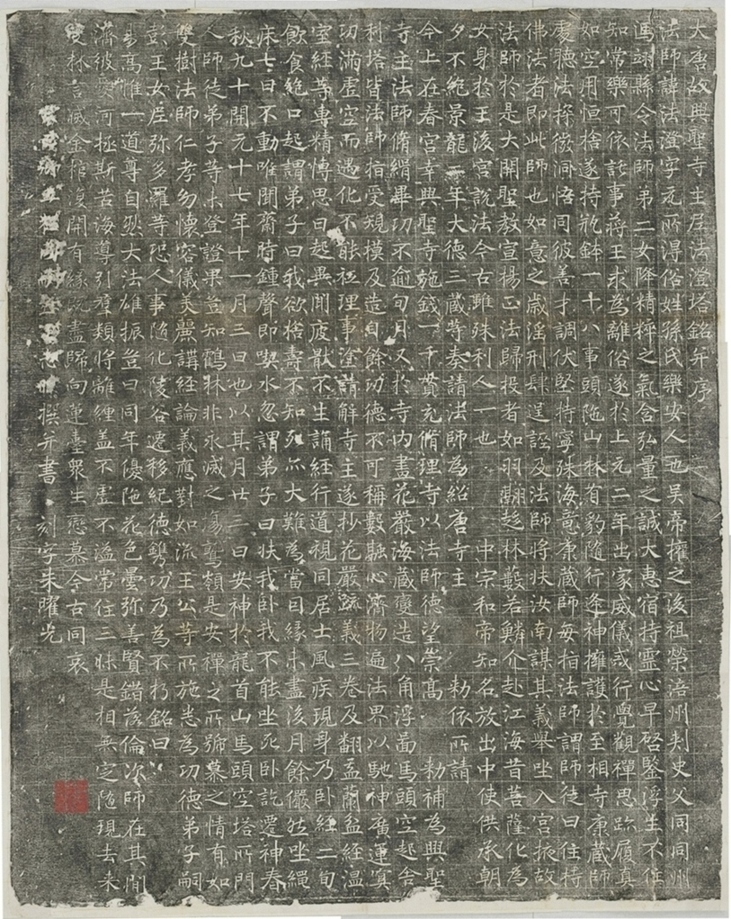 大唐故興聖寺主尼法澄塔銘并序
法師諱法澄字无所得俗姓孫氏樂安人也吳帝權之後祖榮涪州刺史父同同州
馮翊縣令法師第二女降精粹之氣含弘量之誠大惠宿持靈心早啓鑒浮生不住
知常樂可依託事蔣王求為離俗遂於上元二年出家威儀戒行覺觀禪思跡履真
如空用恒捨遂持瓶鉢一十八事頭陁山林有豹隨行逢神擁護於至相寺康藏師
處聽法探微洞悟同彼善才調伏堅持寧殊海意康藏師每指法師謂師徒曰住持
佛法者即此師也如意之歲淫刑肆逞誣及法師將扶汝南謀其義舉坐入宮掖故
法師於是大開聖教宣揚正法歸投者如羽翮趍林藪若鱗介赴江海昔菩薩化為
女身於王後宮說法今古雖殊利人一也 中宗和帝知名放出中使供承朝
夕不絕景龍二年大德三藏等奏請法師為紹唐寺主 勅依所請
今上在春宮幸興聖寺施錢一千貫充脩理寺以法師德望崇高 勅補為興聖
寺主法師脩緝畢功不逾旬月又於寺內畫花嚴海藏變造八角浮圖馬頭空起舍
利塔皆法師指受規模及造自餘功德不可稱數融心濟物遍法界以馳神廣運冥
功滿虛空而遇化不能祗理事塗請解寺主遂抄花嚴䟽義三卷及翻盂蘭盆經溫
室經等專精博思日起異聞疲猒不生誦經行道視同居士風疾現身乃臥經二旬
飲食絕口起謂弟子曰我欲捨壽不知死亦大難為當因緣未盡後月餘儼然坐繩
床七日不動唯聞齋時鍾聲即喫水忽謂弟子曰扶我臥我不能坐死臥訖遷神春
秋九十開元十七年十一月三日也以其月廿三日安神於龍首山馬頭空塔所門
人師徒弟子等未登證果豈知鶴林非永滅之場鷲嶺是安禪之所號慕之情有如
雙樹法師仁孝幼懷容儀美麗講經論義應對如流王公等所施悉為功德弟子嗣
彭王女尼弥多羅等恐人事隨化陵谷遷移紀德鐫功乃為不朽銘曰
易高惟一道尊自然大法雄振豈曰同年優陁花色曇弥善賢錯落倫次師在其間
濟彼愛河拯斯苦海導引群類將離纏盖不虛不溢常住三昧是相無定隨現去來
雙林言滅金棺復開有緣既盡歸向蓮臺眾生戀慕今古同哀
撰并書 刻字朱曜光